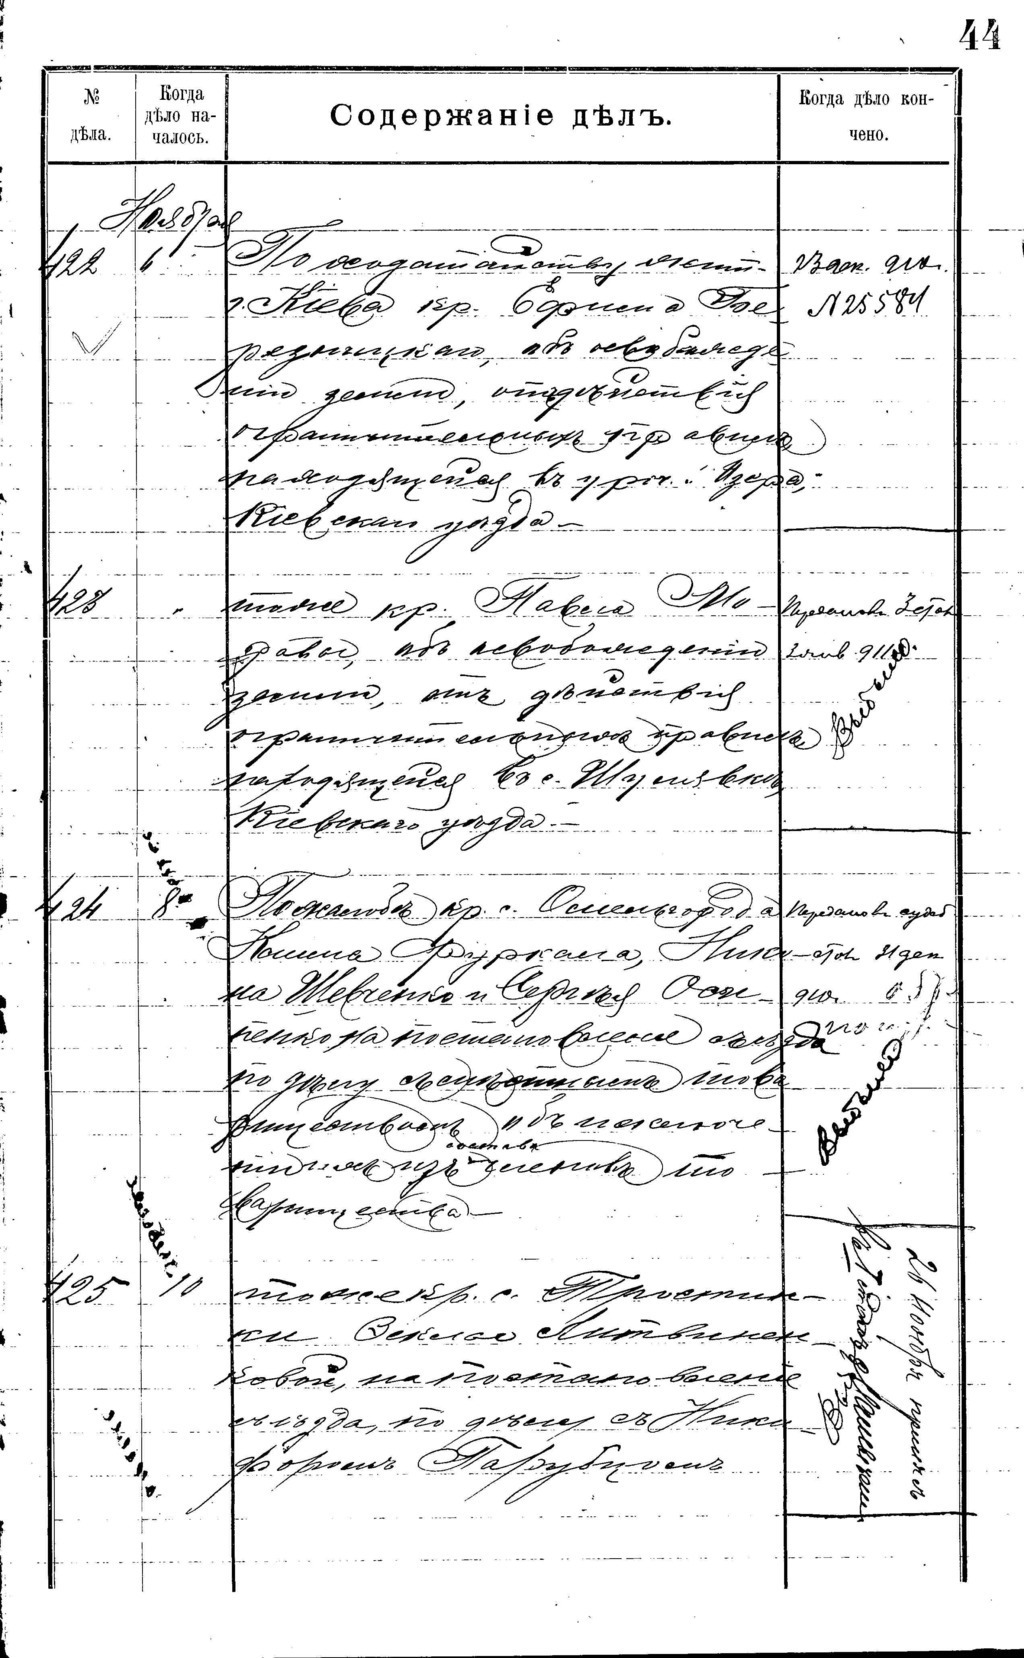 44
№ дѣла.
Когда дѣло началось.
Содержаніе дѣлъ.
Когда дѣло кончено.
Ноября
422 6 По ходатайству жит.
г. Кіева кр. Ефима Бе
резницкаго, объ освобожде
ніи земли, отъ дѣйствія
ограничительныхъ правилъ
находящейся въ уроч. "Озера,"
Кіевскаго уѣзда –
3 дек. 910.
№ 25584
423 " тоже кр. Павла Мо
роваго, объ освобожденіи
земли, отъ дѣйствія
ограничительныхъ правилъ
находящейся въ с. Шулявкѣ,
Кіевскаго уѣзда –
911
424 8 По жалобѣ кр. с.
Фуркала, Ники
на Шевченко и Сергѣя Оси
пенко на постановленіе съѣзда
по дѣлу съ това
риществомъ объ исключе
ніи ихъ изъ состава членовъ то
варищества –
31 дек
910
425 10 тоже кр. с. Тростин
ки Феклы Литвинен
ковой, на постановленіе
съѣзда, по дѣлу съ Ники
форомъ Парубцомъ
26 Ноября принялъ